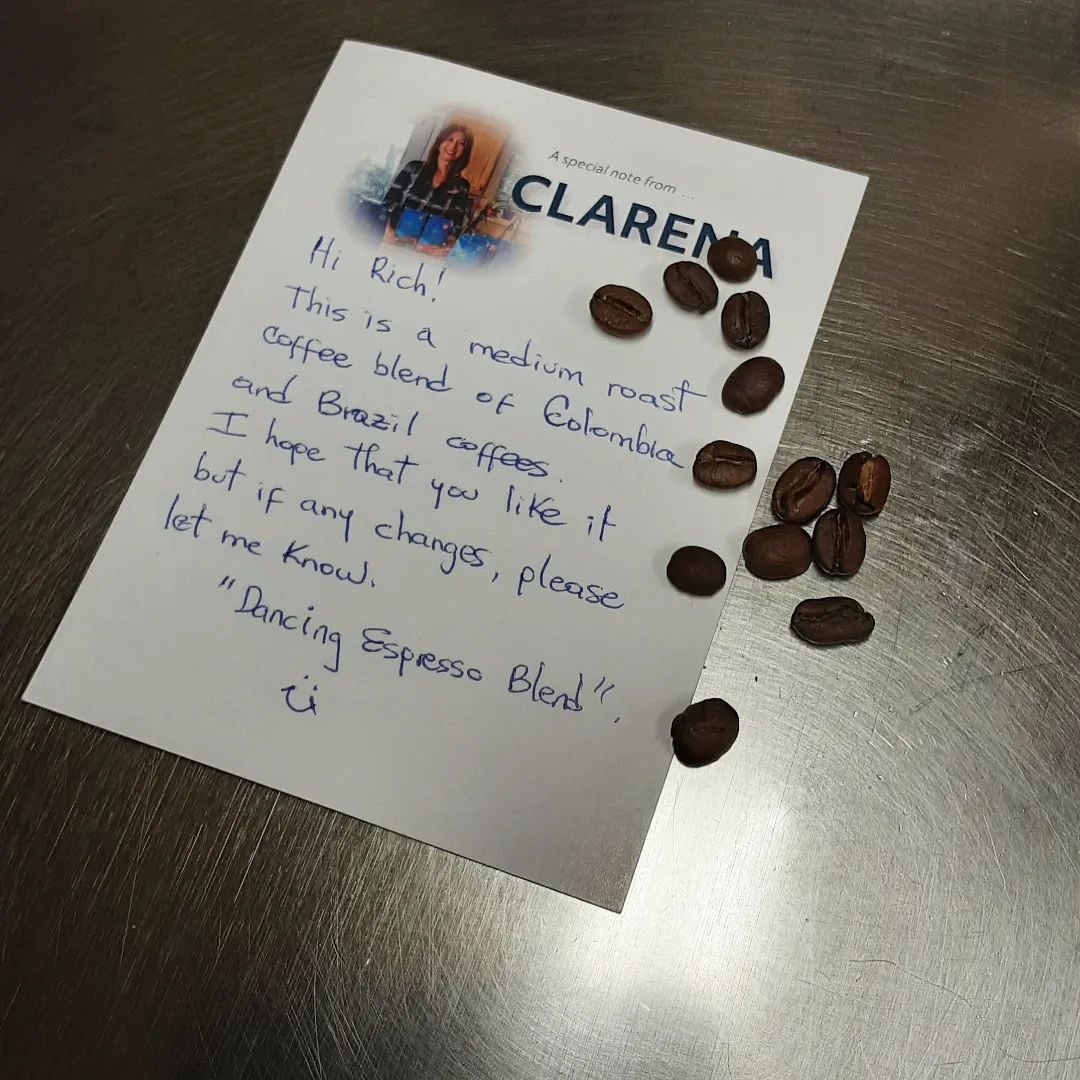 A special note from ...
CLARENA
Hi Rich!
This is a medium roast
coffee blend of Colombia
and Brazil coffees.
I hope that you like it
but if any changes, please
let me know.
"Dancing Espresso Blend".